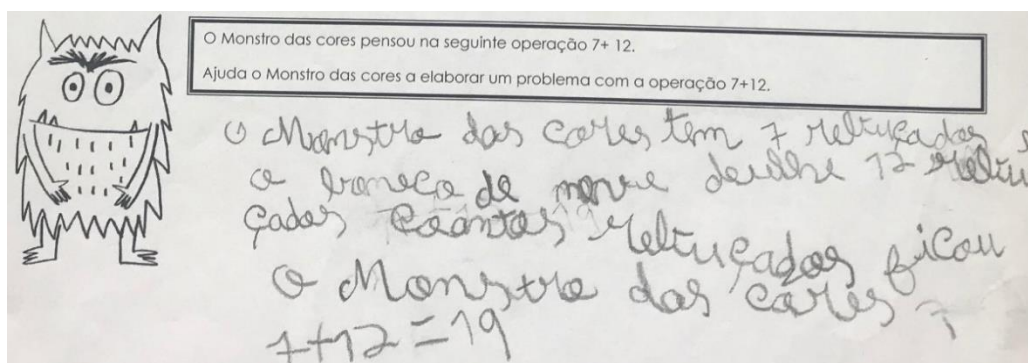 O Monstro das cores pensou na seguinte operação 7+ 12.
Ajuda o Monstro das cores a elaborar um problema com a operação 7+12.
O Monstro das cores tem 7 rebuçados
o boneco de neve deulhe 12 rebu
çados Coantos rebuçados ficou
o Monstro das cores ?
7+12=19